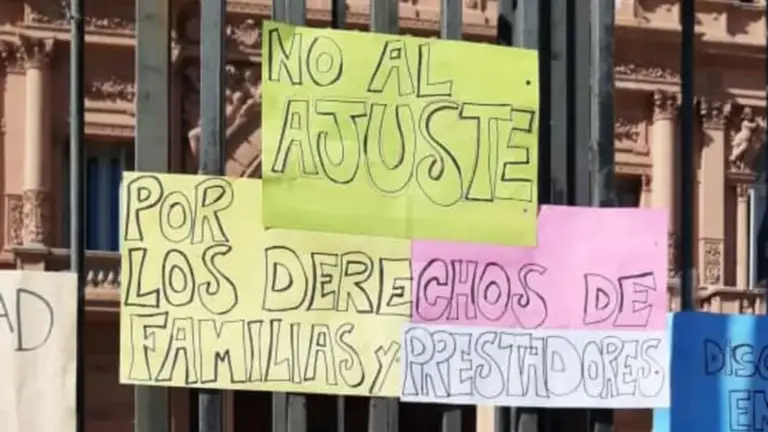 NO AL
AJUSTE
POR
LOS DERECHOS DE
FAMILIAS Y PRESTADORES
AD
DISC
EN